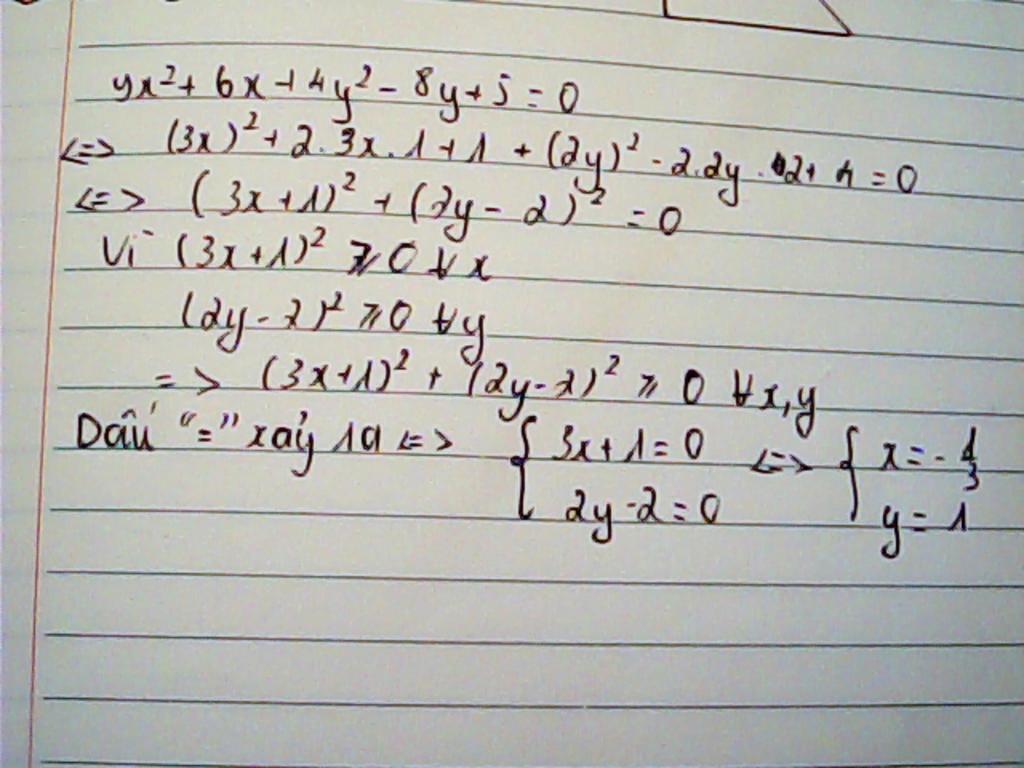 9x² + 6x + 4y² - 8y + 5 = 0
<=> (3x)² + 2.3x.1 + 1 + (2y)² - 2.2y.2 + 4 = 0
<=> (3x+1)² + (2y-2)² = 0
Vì (3x+1)² ≥ 0 ∀x
(2y-2)² ≥ 0 ∀y
=> (3x+1)² + (2y-2)² ≥ 0 ∀x,y
Dấu "=" xảy ra <=> { 3x+1=0 <=> { x = -1/3
2y-2=0 y = 1